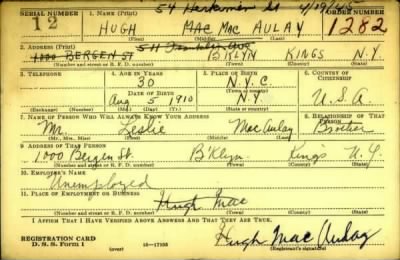 54 Herkimer St 4/19/45
SERIAL NUMBER 1. NAME (Print) ORDER NUMBER
12 HUGH MAC MAC AULAY 1282
(First) (Middle) (Last)
2. ADDRESS (Print) 511 Franklin Ave
1000 BERGEN ST BKLYN KINGS N.Y
(Number and street or R. F. D. number) (Town) (County) (State)
3. TELEPHONE 4. AGE IN YEARS 5. PLACE OF BIRTH 6. COUNTRY OF CITIZENSHIP
30 N.Y.C.
DATE OF BIRTH (Town or county)
Aug 5 1910 N.Y U.S.A.
(Exchange) (Number) (Mo.) (Day) (Yr.) (State or country)
7. NAME OF PERSON WHO WILL ALWAYS KNOW YOUR ADDRESS 8. RELATIONSHIP OF THAT PERSON
Mr. Leslie MacAulay Brother
(Mr., Mrs., Miss) (First) (Middle) (Last)
9. ADDRESS OF THAT PERSON
1000 Bergen St. B'klyn Kings N.Y.
(Number and street or R. F. D. number) (Town) (County) (State)
10. EMPLOYER'S NAME
Unemployed
11. PLACE OF EMPLOYMENT OR BUSINESS
Hugh Mac
(Number and street or R. F. D. number) (Town) (County) (State)
I AFFIRM THAT I HAVE VERIFIED ABOVE ANSWERS AND THAT THEY ARE TRUE.
REGISTRATION CARD
D. S. S. Form 1 (over) 16-17105 Hugh Mac Aulay
(Registrant's signature)